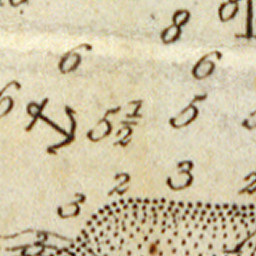 8 8
6 6
6 5½ 5
2 3 2
3
3